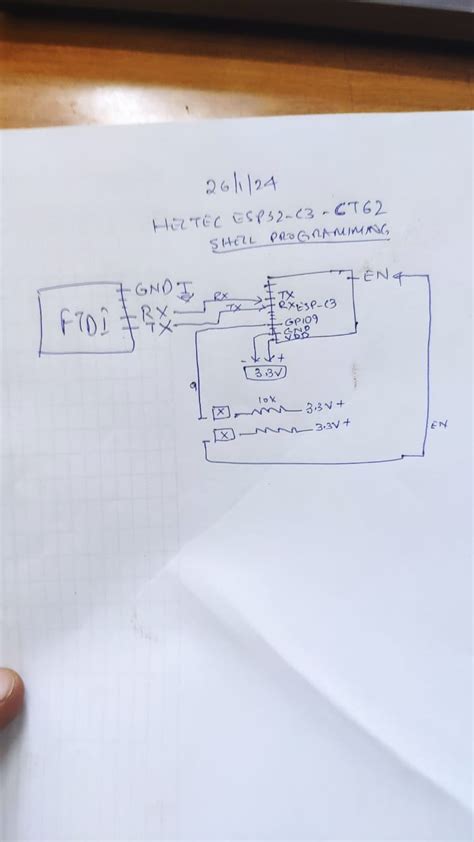 26/1/24
HELTEC ESP32-C3-CT62
SHELL PROGRAMMING
FTDI
GND
RX
TX
RX
TX
TX
RX
ESP-C3
GPIO9
GND
VDD
EN
- +
3.3V
9
X
10K
3.3V+
X
3.3V+
EN